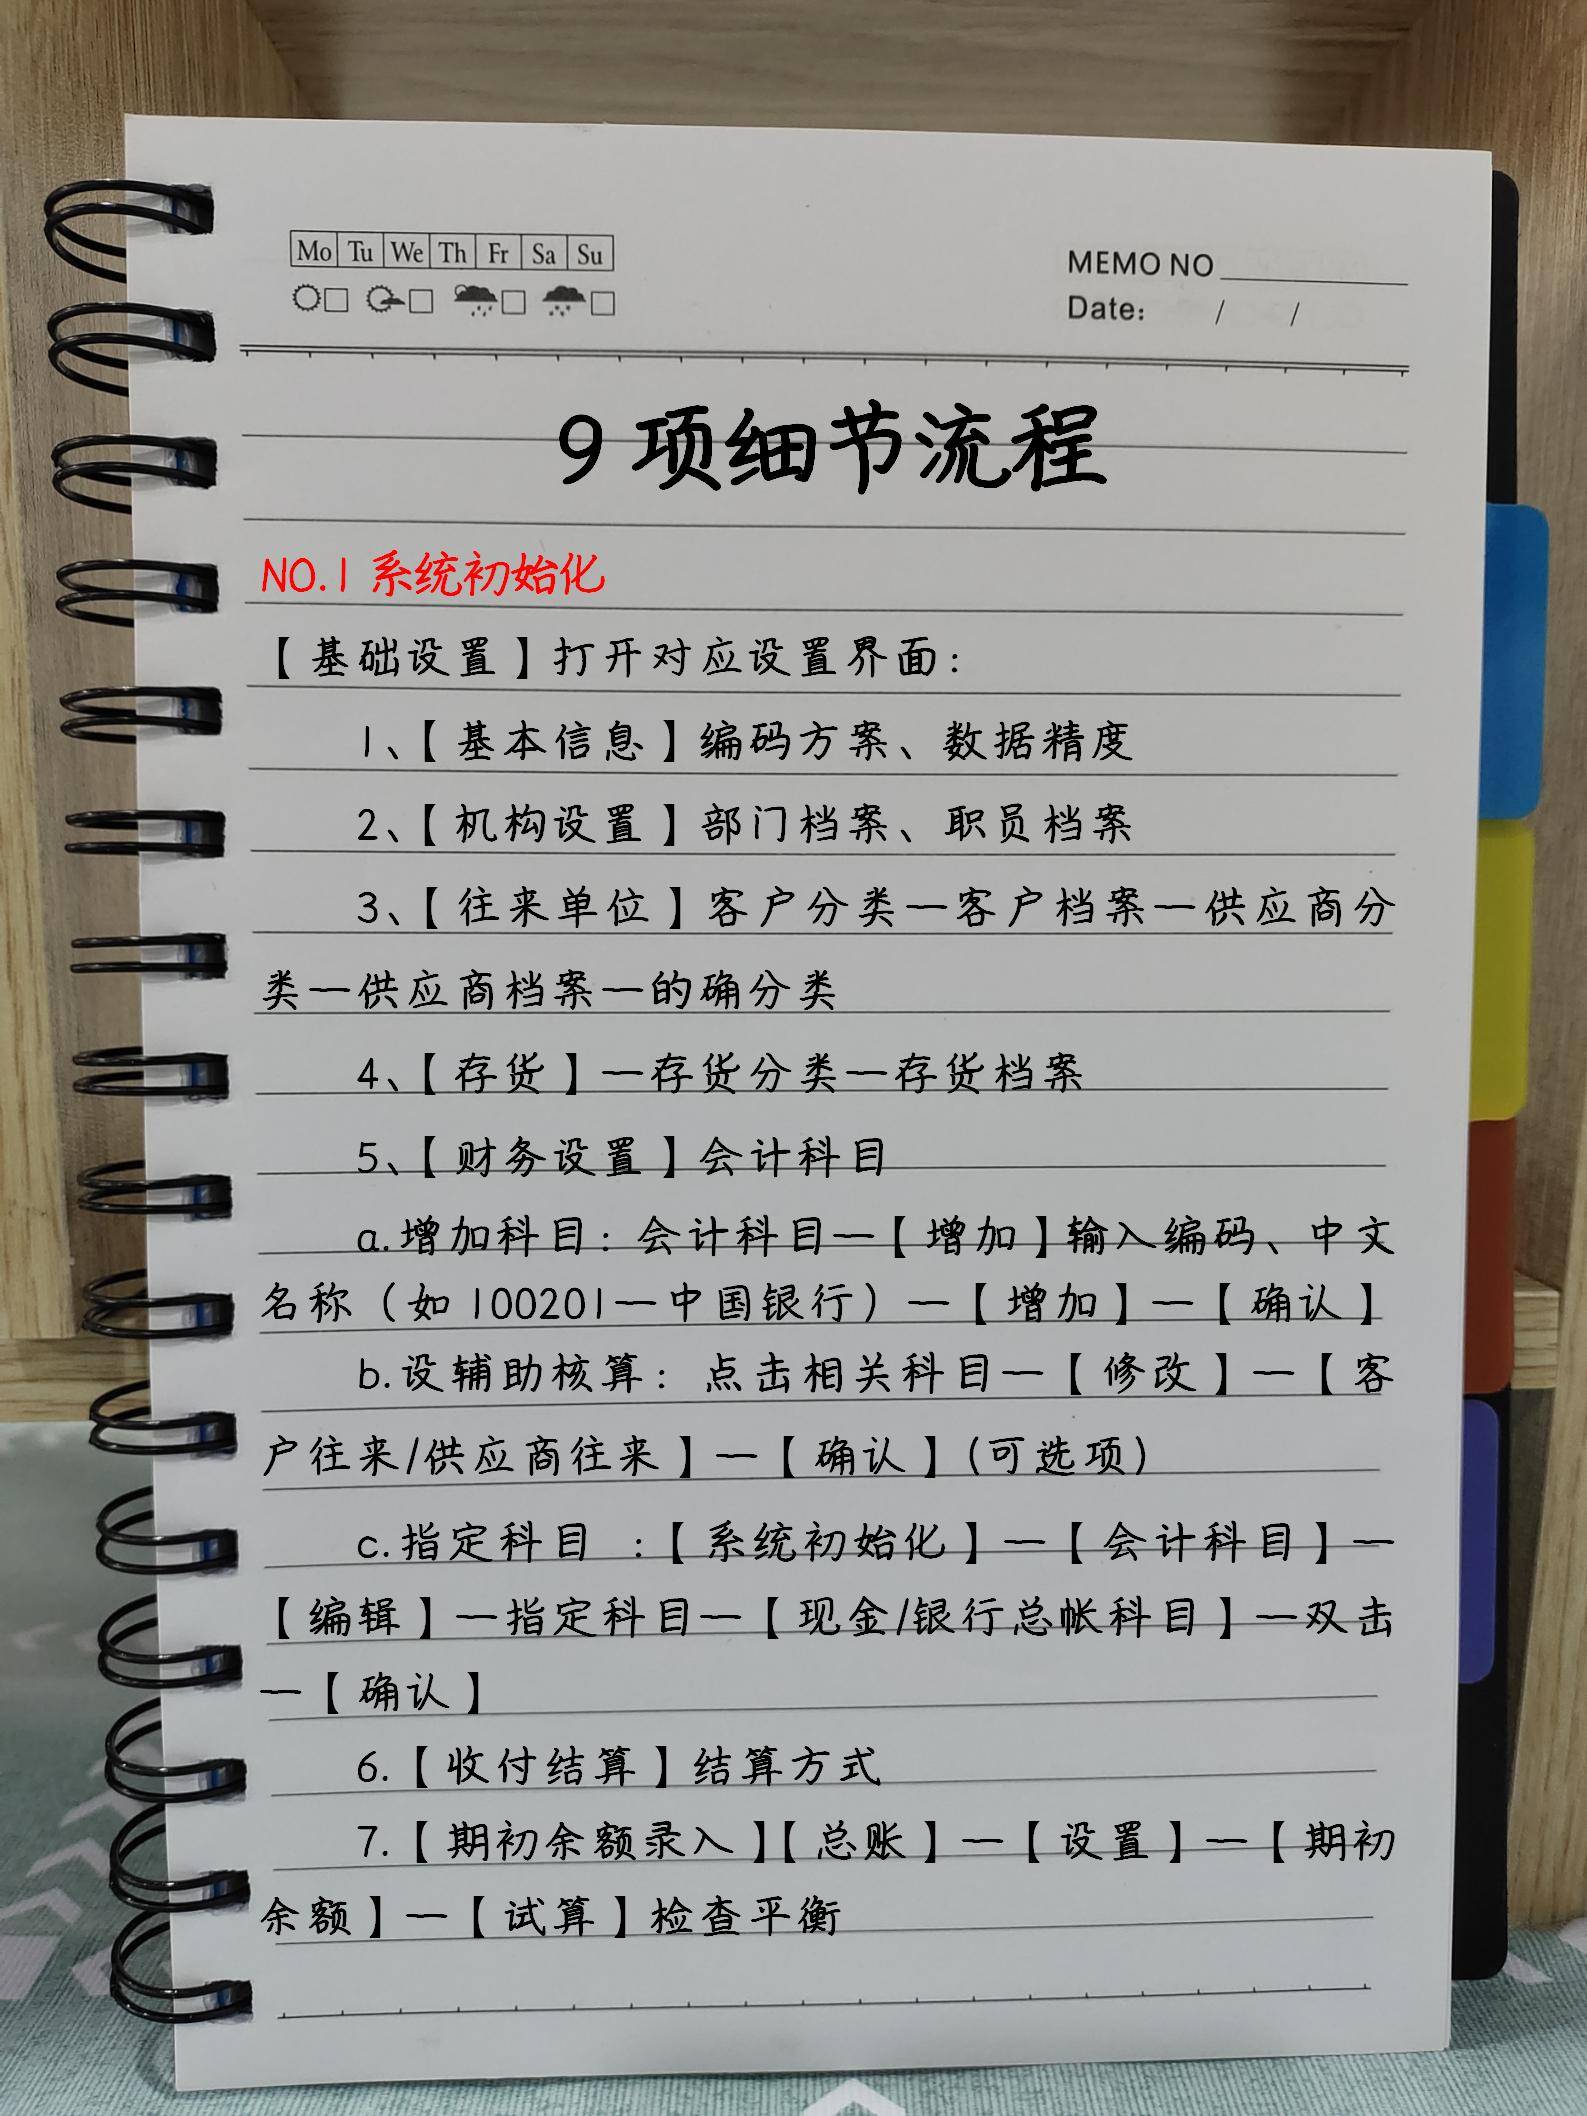 Mo Tu We Th Fr Sa Su
MEMO NO
Date: / /
9项细节流程
NO.1 系统初始化
【基础设置】打开对应设置界面：
1、【基本信息】编码方案、数据精度
2、【机构设置】部门档案、职员档案
3、【往来单位】客户分类—客户档案—供应商分
类—供应商档案—的确分类
4、【存货】—存货分类—存货档案
5、【财务设置】会计科目
a.增加科目：会计科目—【增加】输入编码、中文
名称（如100201—中国银行）—【增加】—【确认】
b.设辅助核算：点击相关科目—【修改】—【客
户往来/供应商往来】—【确认】(可选项)
c.指定科目 :【系统初始化】—【会计科目】—
【编辑】—指定科目—【现金/银行总帐科目】—双击
—【确认】
6.【收付结算】结算方式
7.【期初余额录入】【总账】—【设置】—【期初
余额】—【试算】检查平衡